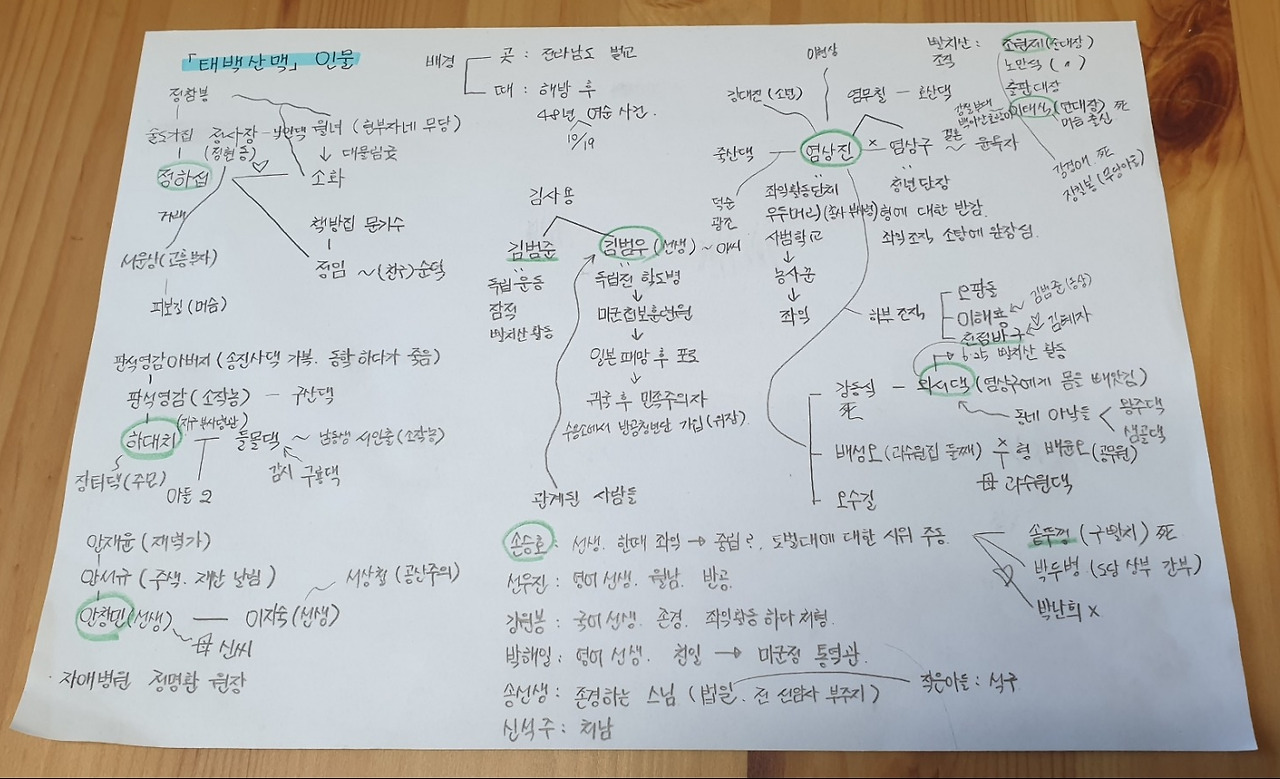 「태백산맥」 인물
배경
곳 : 전라남도 벌교
때 : 해방 후
48년 여순 사건.
10/19
정참봉
술도가집 정사장 - 낙안댁 월녀 (현부자네 무당)
(정현동)
↓ 대물림굿
정하섭 ♡ 소화
거래
서운상 (고흥부자)
피보길 (머슴)
책방집 문가수
정임 ~ (친구) 순덕
김사용
김범준
독립운동
잠적
빨치산 활동
김범우 (선생) ~ 아씨
독립전 학도병
↓
미군첩보훈련원
↓
일본 패망 후 포로
↓
귀국 후 민족주의자
수용소에서 반공청년단 가입 (위장).
관계된 사람들
이현상
강대진 (소년)
염무칠 - 호산댁
죽산댁 - 염상진 × 염상구 결혼 ~ 윤옥자
덕순
광조
좌익활동단체
우두머리
사범학교
↓
농사꾼
↓
좌익
청년단장
형에 대한 반감.
좌익조직 소탕에 앞장섬.
빨치산 조직 : 조원제 (소대장)
노만석 ( 〃 )
출판대장
이태식 (연대장) 死
머슴 출신
김경애 死
장칠봉 (무당아들)
하부조직
오판돌
이해룡 김범준 (동상)
천점바구 ♡ 김혜자
6.25 빨치산 활동
강동식 - 외서댁 (염상구에게 몸을 빼앗김)
死
동네 아낙들 < 왕주댁
샘골댁
배성오 (과수원집 둘째) × 형 배윤오 (공무원)
母 과수원댁
오수길
판석영감아버지 (송진사댁 가복. 동학 하다가 죽음)
판석영감 (소작농) - 구산댁
하대치 들몰댁 ~ 남동생 서인출 (소작농)
감시 구룡댁
장터댁 (주모)
아들 2
안재윤 (재력가)
안서규 (주색. 재산 날림)
서상철 (공산주의)
안창민 (선생) - 이지숙 (선생)
母 신씨
자애병원 정명환 원장
손승호 : 선생. 한때 좌익 → 중립?. 토벌대에 대한 시위 주동.
솥뚜껑 (구빨치) 死
박두병 (도당 상부 간부)
♡ 박난희 ×
선우진 : 영어 선생. 월남. 반공.
강원봉 : 국어 선생. 존경. 좌익활동 하다 처형.
박해일 : 영어 선생. 친일 → 미군정 통역관.
송선생 : 존경하는 스님 (법일. 전 선암사 부주지) 작은아들 : 석구
신석주 : 처남